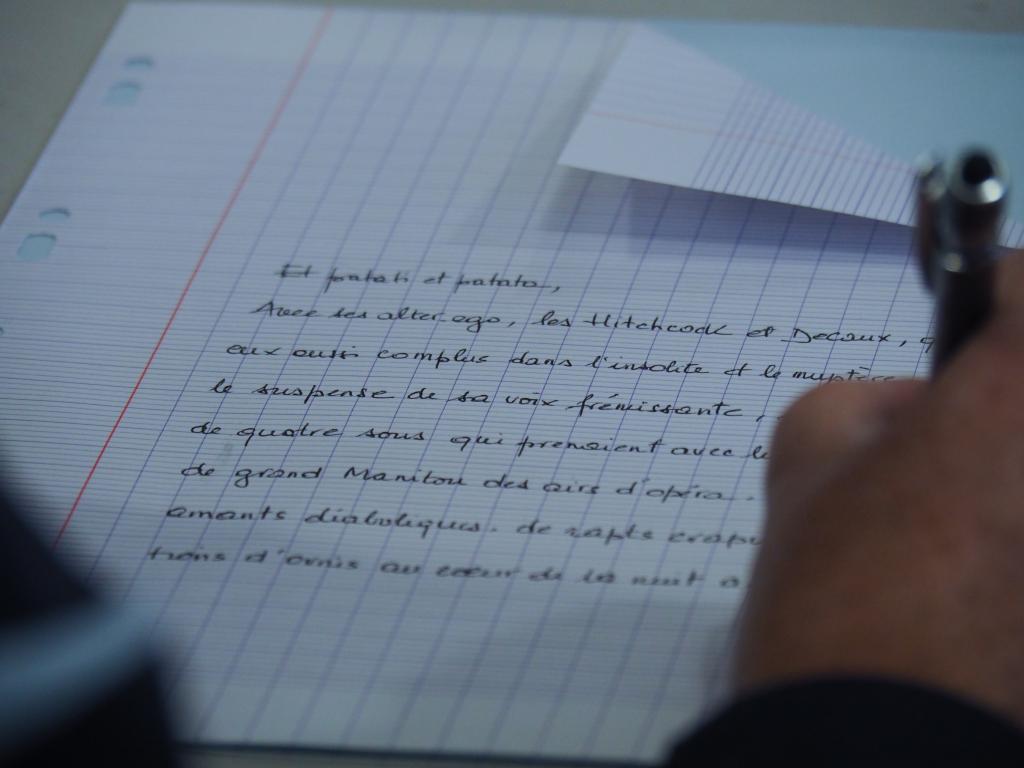 Et patati et patata,
Avec ses alter ego, les Hitchcock et Decaux,
eux aussi complus dans l'insolite et le mystère
le suspense de sa voix frémissante,
de quatre sous qui prenaient avec
de grand Manitou des airs d'opéra.
amants diaboliques. de rapts
d'ovnis au coeur de la nuit